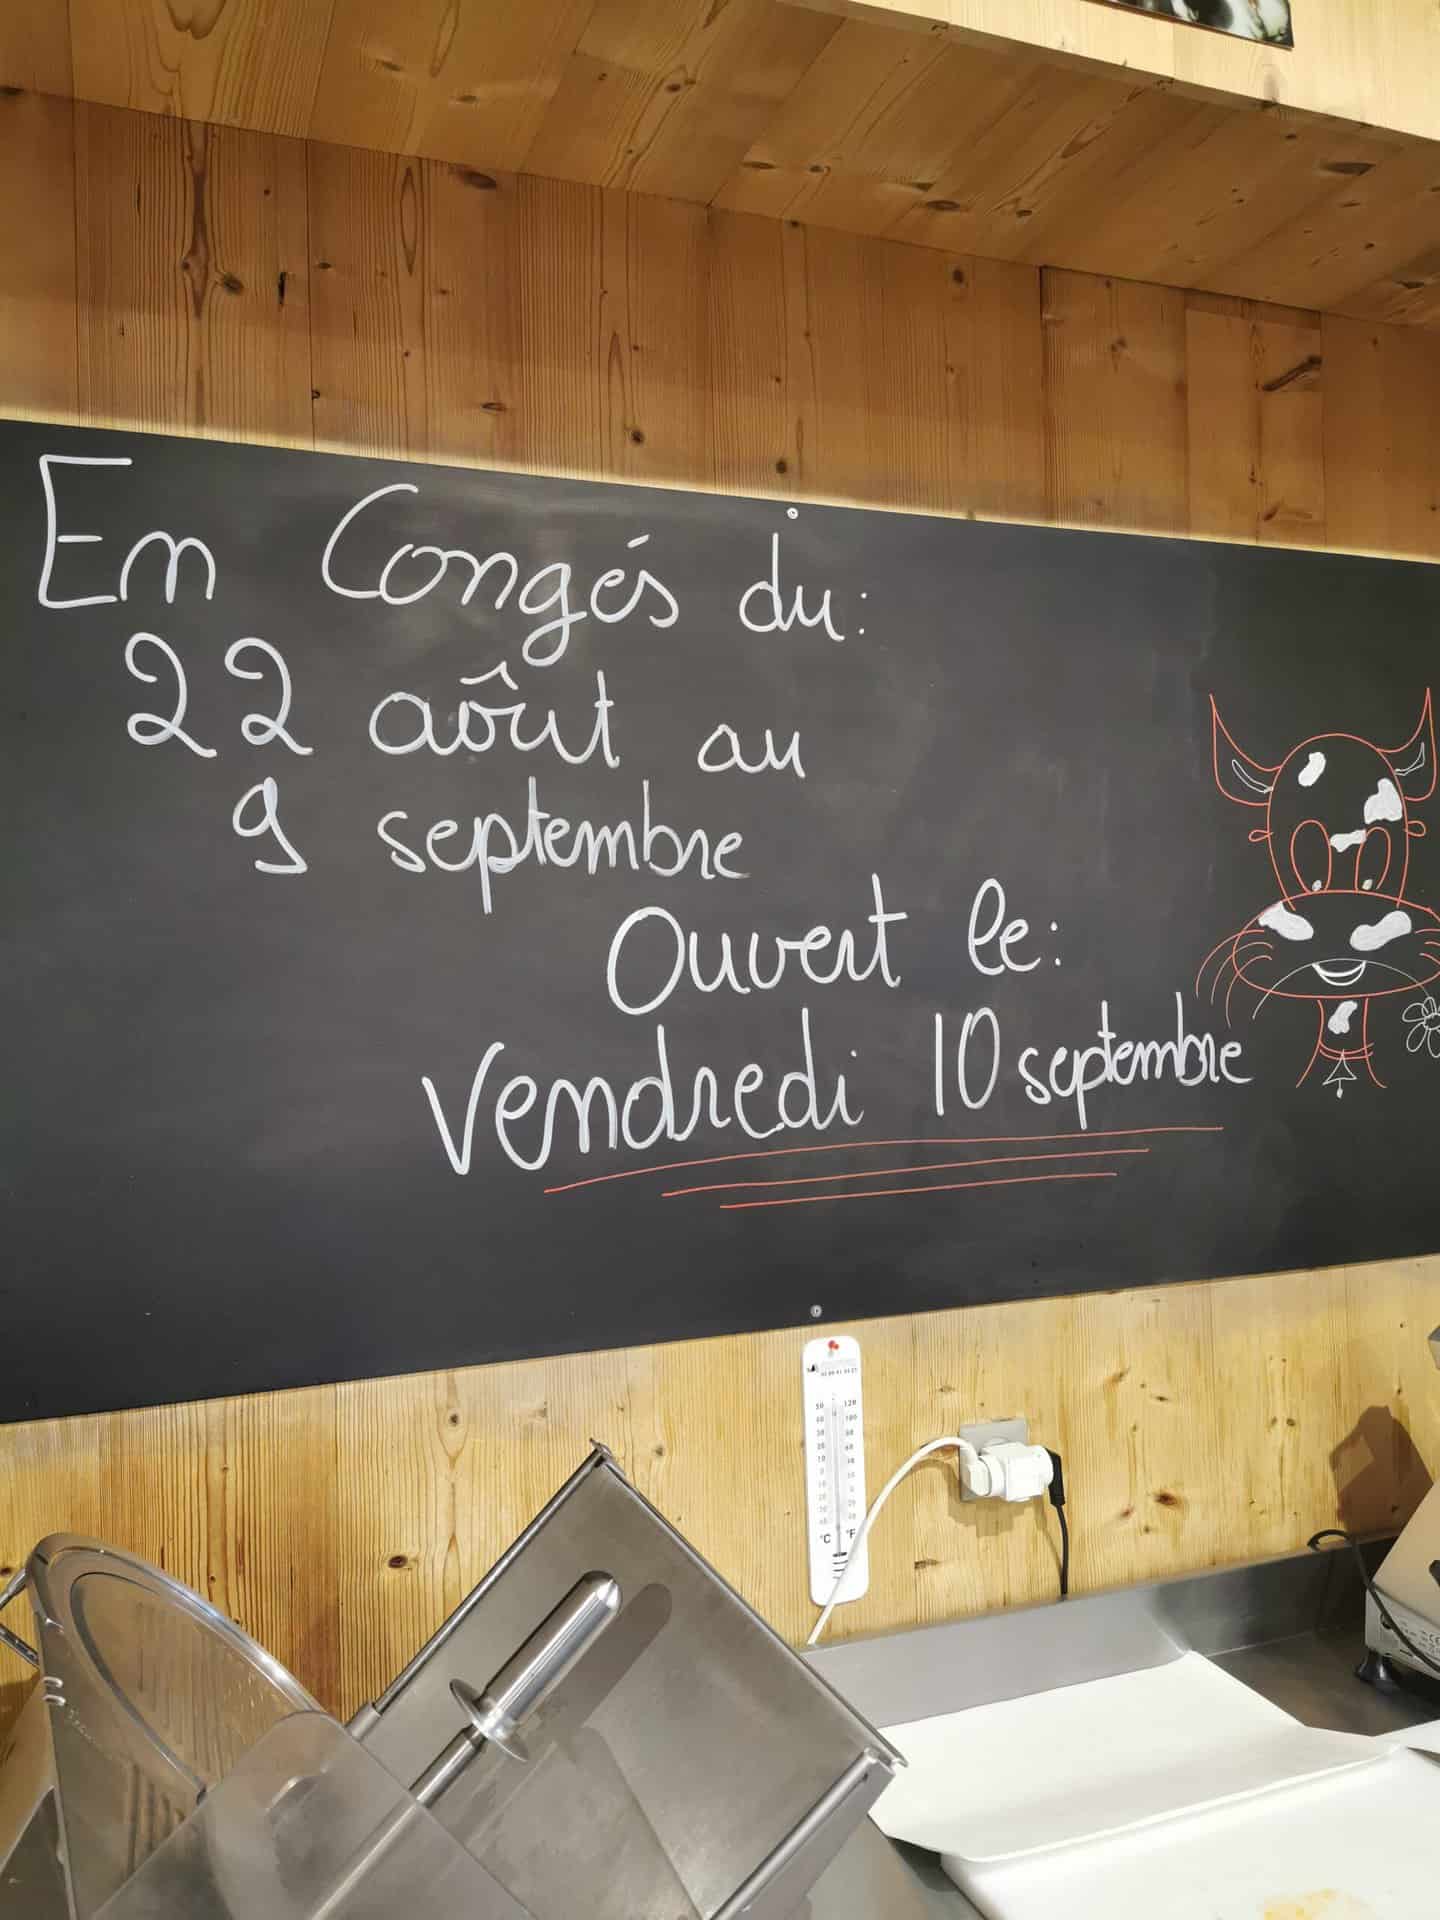 En Congés du:
22 aôut au
9 septembre
Ouvert le:
Vendredi 10 septembre
°C °F